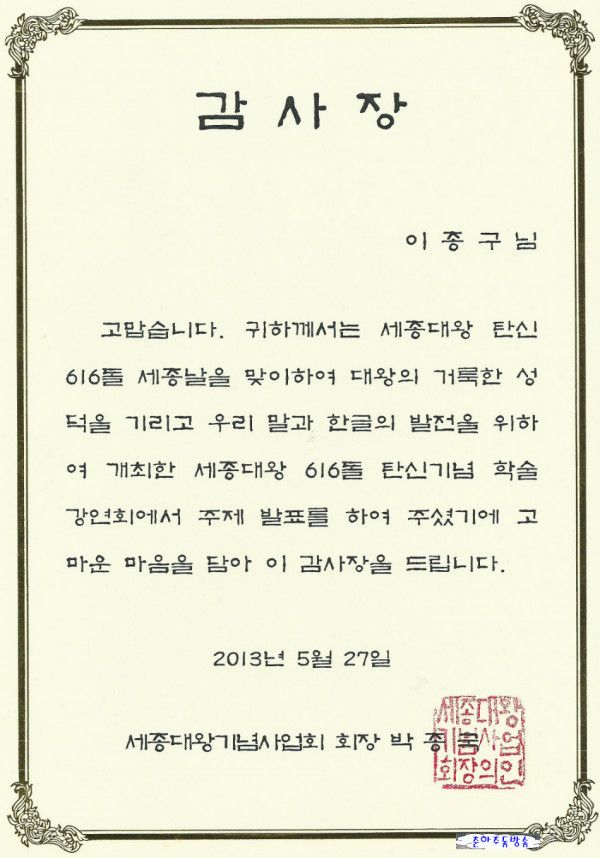 감사장
이종구님
고맙습니다. 귀하께서는 세종대왕 탄신
616돌 세종날을 맞이하여 대왕의 거룩한 성
덕을 기리고 우리 말과 한글의 발전을 위하
여 개최한 세종대왕 616돌 탄신기념 학술
강연회에서 주제 발표를 하여 주셨기에 고
마운 마음을 담아 이 감사장을 드립니다.
2013년 5월 27일
세종대왕기념사업회 회장 박 종
세종대왕
기념사업
회장의인
춘하추동방송